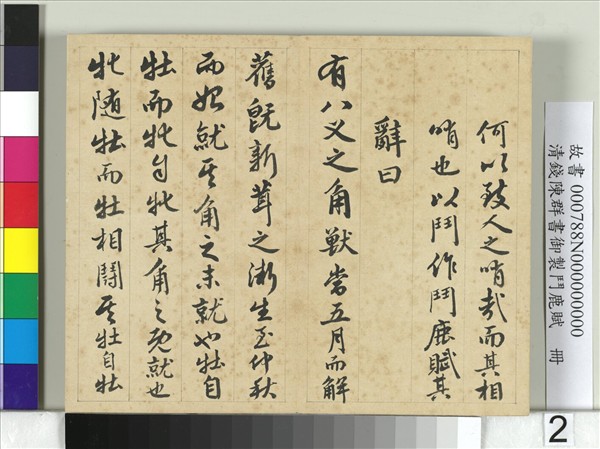 何以致人之哨哉而其相
哨也以鬥作鬥鹿賦其
辭曰
有八义之角獸當五月而解
舊既新茸之漸生至仲秋
而始就其角之未就也牡自
牡而牝自牝其角之既就也
牝随牡而牡相鬪其牡自牡
故書 000788N000000000
清錢陳群書御製鬥鹿賦 冊
2